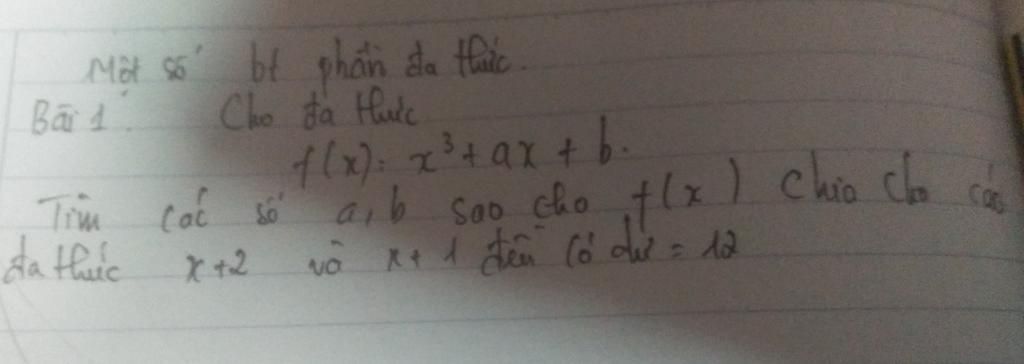 Một số bt phần đa thức.
Bài 1: Cho đa thức
f(x) = x³ + ax + b.
Tìm các số a, b sao cho f(x) chia cho các
đa thức x+2 và x+1 đều có dư = 12